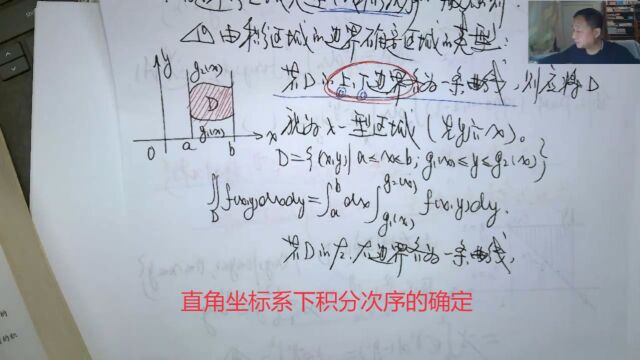 (1) 由积分区域的边界确定区域的类型:
若D的上,下边界各为一条曲线,则应将D
视为x-型区域(先y后x)。
y
g₂(x)
D
g₁(x)
0 a b x
D={(x,y)|a≤x≤b, g₁(x)≤y≤g₂(x)}
∬_D f(x,y)dxdy=∫_a^b dx∫_{g₁(x)}^{g₂(x)} f(x,y)dy.
若D的左,右边界各为一条曲线,
直角坐标系下积分次序的确定